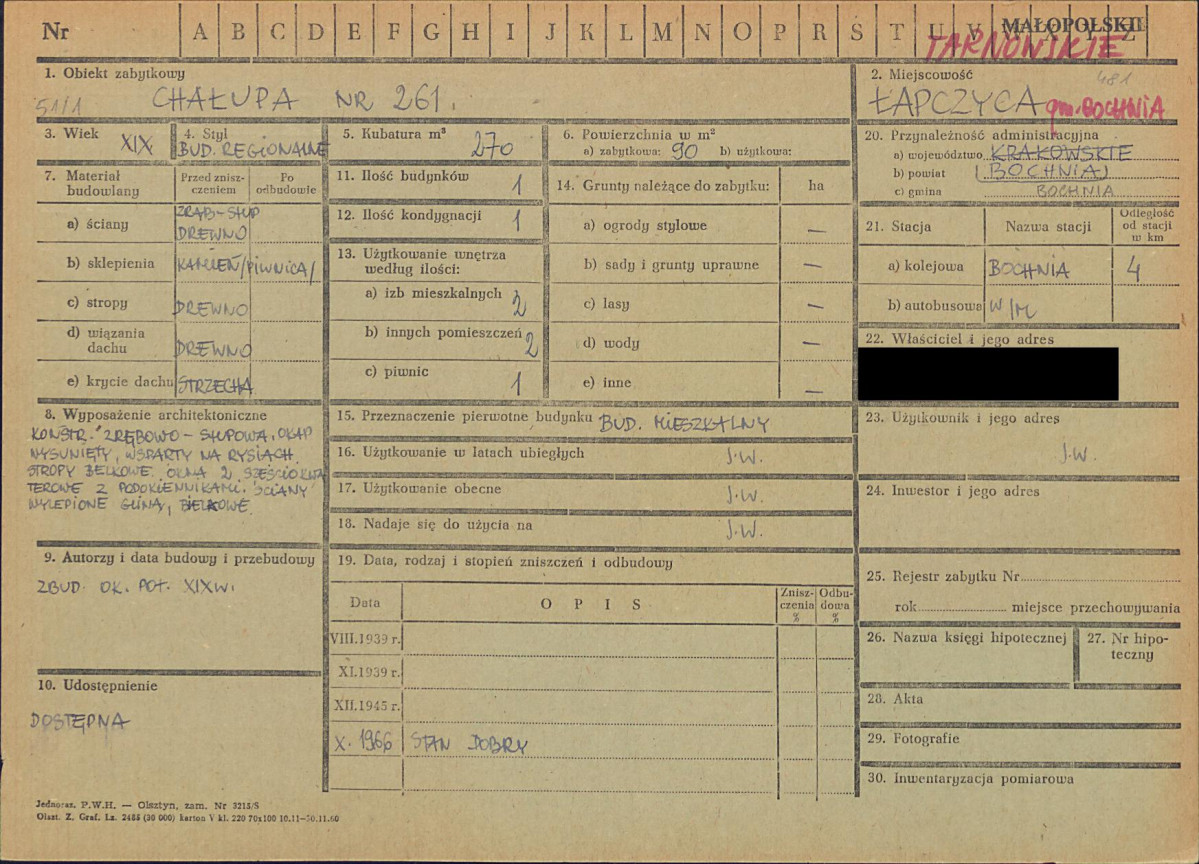 Nr A B C D E F G H I J K L M N O P R S T U V X Y Z
MAŁOPOLSKIE
TARNOWSKIE
1. Obiekt zabytkowy
51/1 CHAŁUPA NR 261.
2. Miejscowość 481
ŁAPCZYCA gm. BOCHNIA
3. Wiek XIX
4. Styl
BUD. REGIONALNE
5. Kubatura m³ 270
6. Powierzchnia w m²
a) zabytkowa: 90 b) użytkowa:
7. Materiał budowlany
Przed zniszczeniem
Po odbudowie
a) ściany ZRĄB-SŁUP DREWNO
b) sklepienia KAMIEŃ/PIWNICA/
c) stropy DREWNO
d) wiązania dachu DREWNO
e) krycie dachu STRZECHA
8. Wyposażenie architektoniczne
KONSTR. ZRĘBOWO-SŁUPOWA, OKAP
WYSUNIĘTY, WSPARTY NA RYSIACH.
STROPY BELKOWE. OKNA 2 SZEŚCIOKWA
TEROWE Z PODOKIENNIKAMI. ŚCIANY
WYLEPIONE GLINĄ, BIELKOWE
9. Autorzy i data budowy i przebudowy
ZBUD. OK. POŁ. XIX w.
10. Udostępnienie
DOSTĘPNA
11. Ilość budynków 1
12. Ilość kondygnacji 1
13. Użytkowanie wnętrza według ilości:
a) izb mieszkalnych 2
b) innych pomieszczeń 2
c) piwnic 1
14. Grunty należące do zabytku: ha
a) ogrody stylowe —
b) sady i grunty uprawne —
c) lasy —
d) wody —
e) inne —
15. Przeznaczenie pierwotne budynku BUD. MIESZKALNY
16. Użytkowanie w latach ubiegłych J.W.
17. Użytkowanie obecne J.W.
18. Nadaje się do użycia na J.W.
19. Data, rodzaj i stopień zniszczeń i odbudowy
Data OPIS Zniszczenia % Odbudowa %
VIII.1939 r.
XI.1939 r.
XII.1945 r.
X. 1966 STAN DOBRY
20. Przynależność administracyjna
a) województwo KRAKOWSKIE
b) powiat (BOCHNIA)
c) gmina BOCHNIA
21. Stacja Nazwa stacji Odległość od stacji w km
a) kolejowa BOCHNIA 4
b) autobusowa W/M
22. Właściciel i jego adres
23. Użytkownik i jego adres
J.W.
24. Inwestor i jego adres
25. Rejestr zabytku Nr
rok miejsce przechowywania
26. Nazwa księgi hipotecznej
27. Nr hipoteczny
28. Akta
29. Fotografie
30. Inwentaryzacja pomiarowa
Jednoraz. P.W.H. — Olsztyn, zam. Nr 3215/S
Olszt. Z. Graf. Lz. 2488 (30 000) karton V kl. 220 70x100 10.11—30.11.60